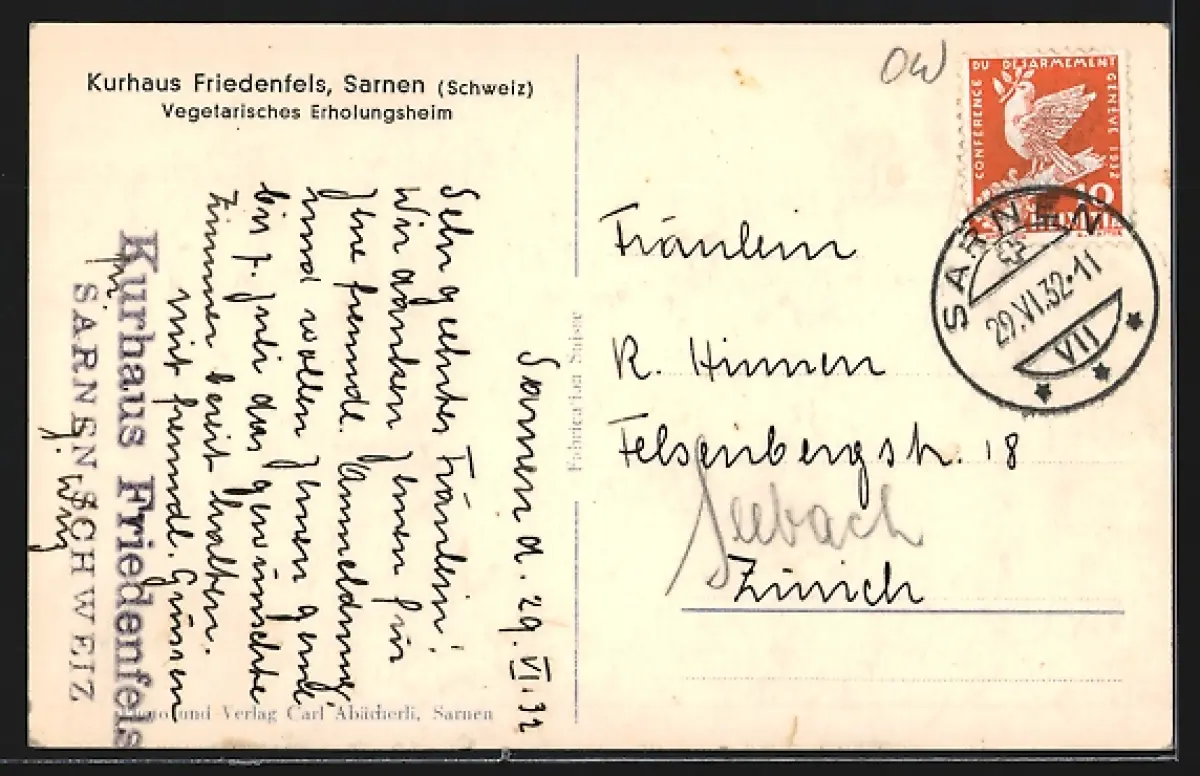 Kurhaus Friedenfels, Sarnen (Schweiz)
Vegetarisches Erholungsheim
Sarnen d. 29. VI. 32
Sehr geehrtes Fräulein!
Wir danken Ihnen für
Ihre freundl. Anmeldung
und wollen Ihnen gerne
bis 7. Juli das gewünschte
Zimmer bereit halten.
Mit freundl. Grüssen
Kurhaus Friedenfels
SARNEN SCHWEIZ
Photo und Verlag Carl Abächerli, Sarnen
Fabrication Suisse
OW
CONFERENCE DU DESARMEMENT GENEVE 1932
10
HELVETIA
SARNEN
29.VI.32-11
VII
Fräulein
R. Hinnen
Felsenbergstr. 18
Seebach
Zürich